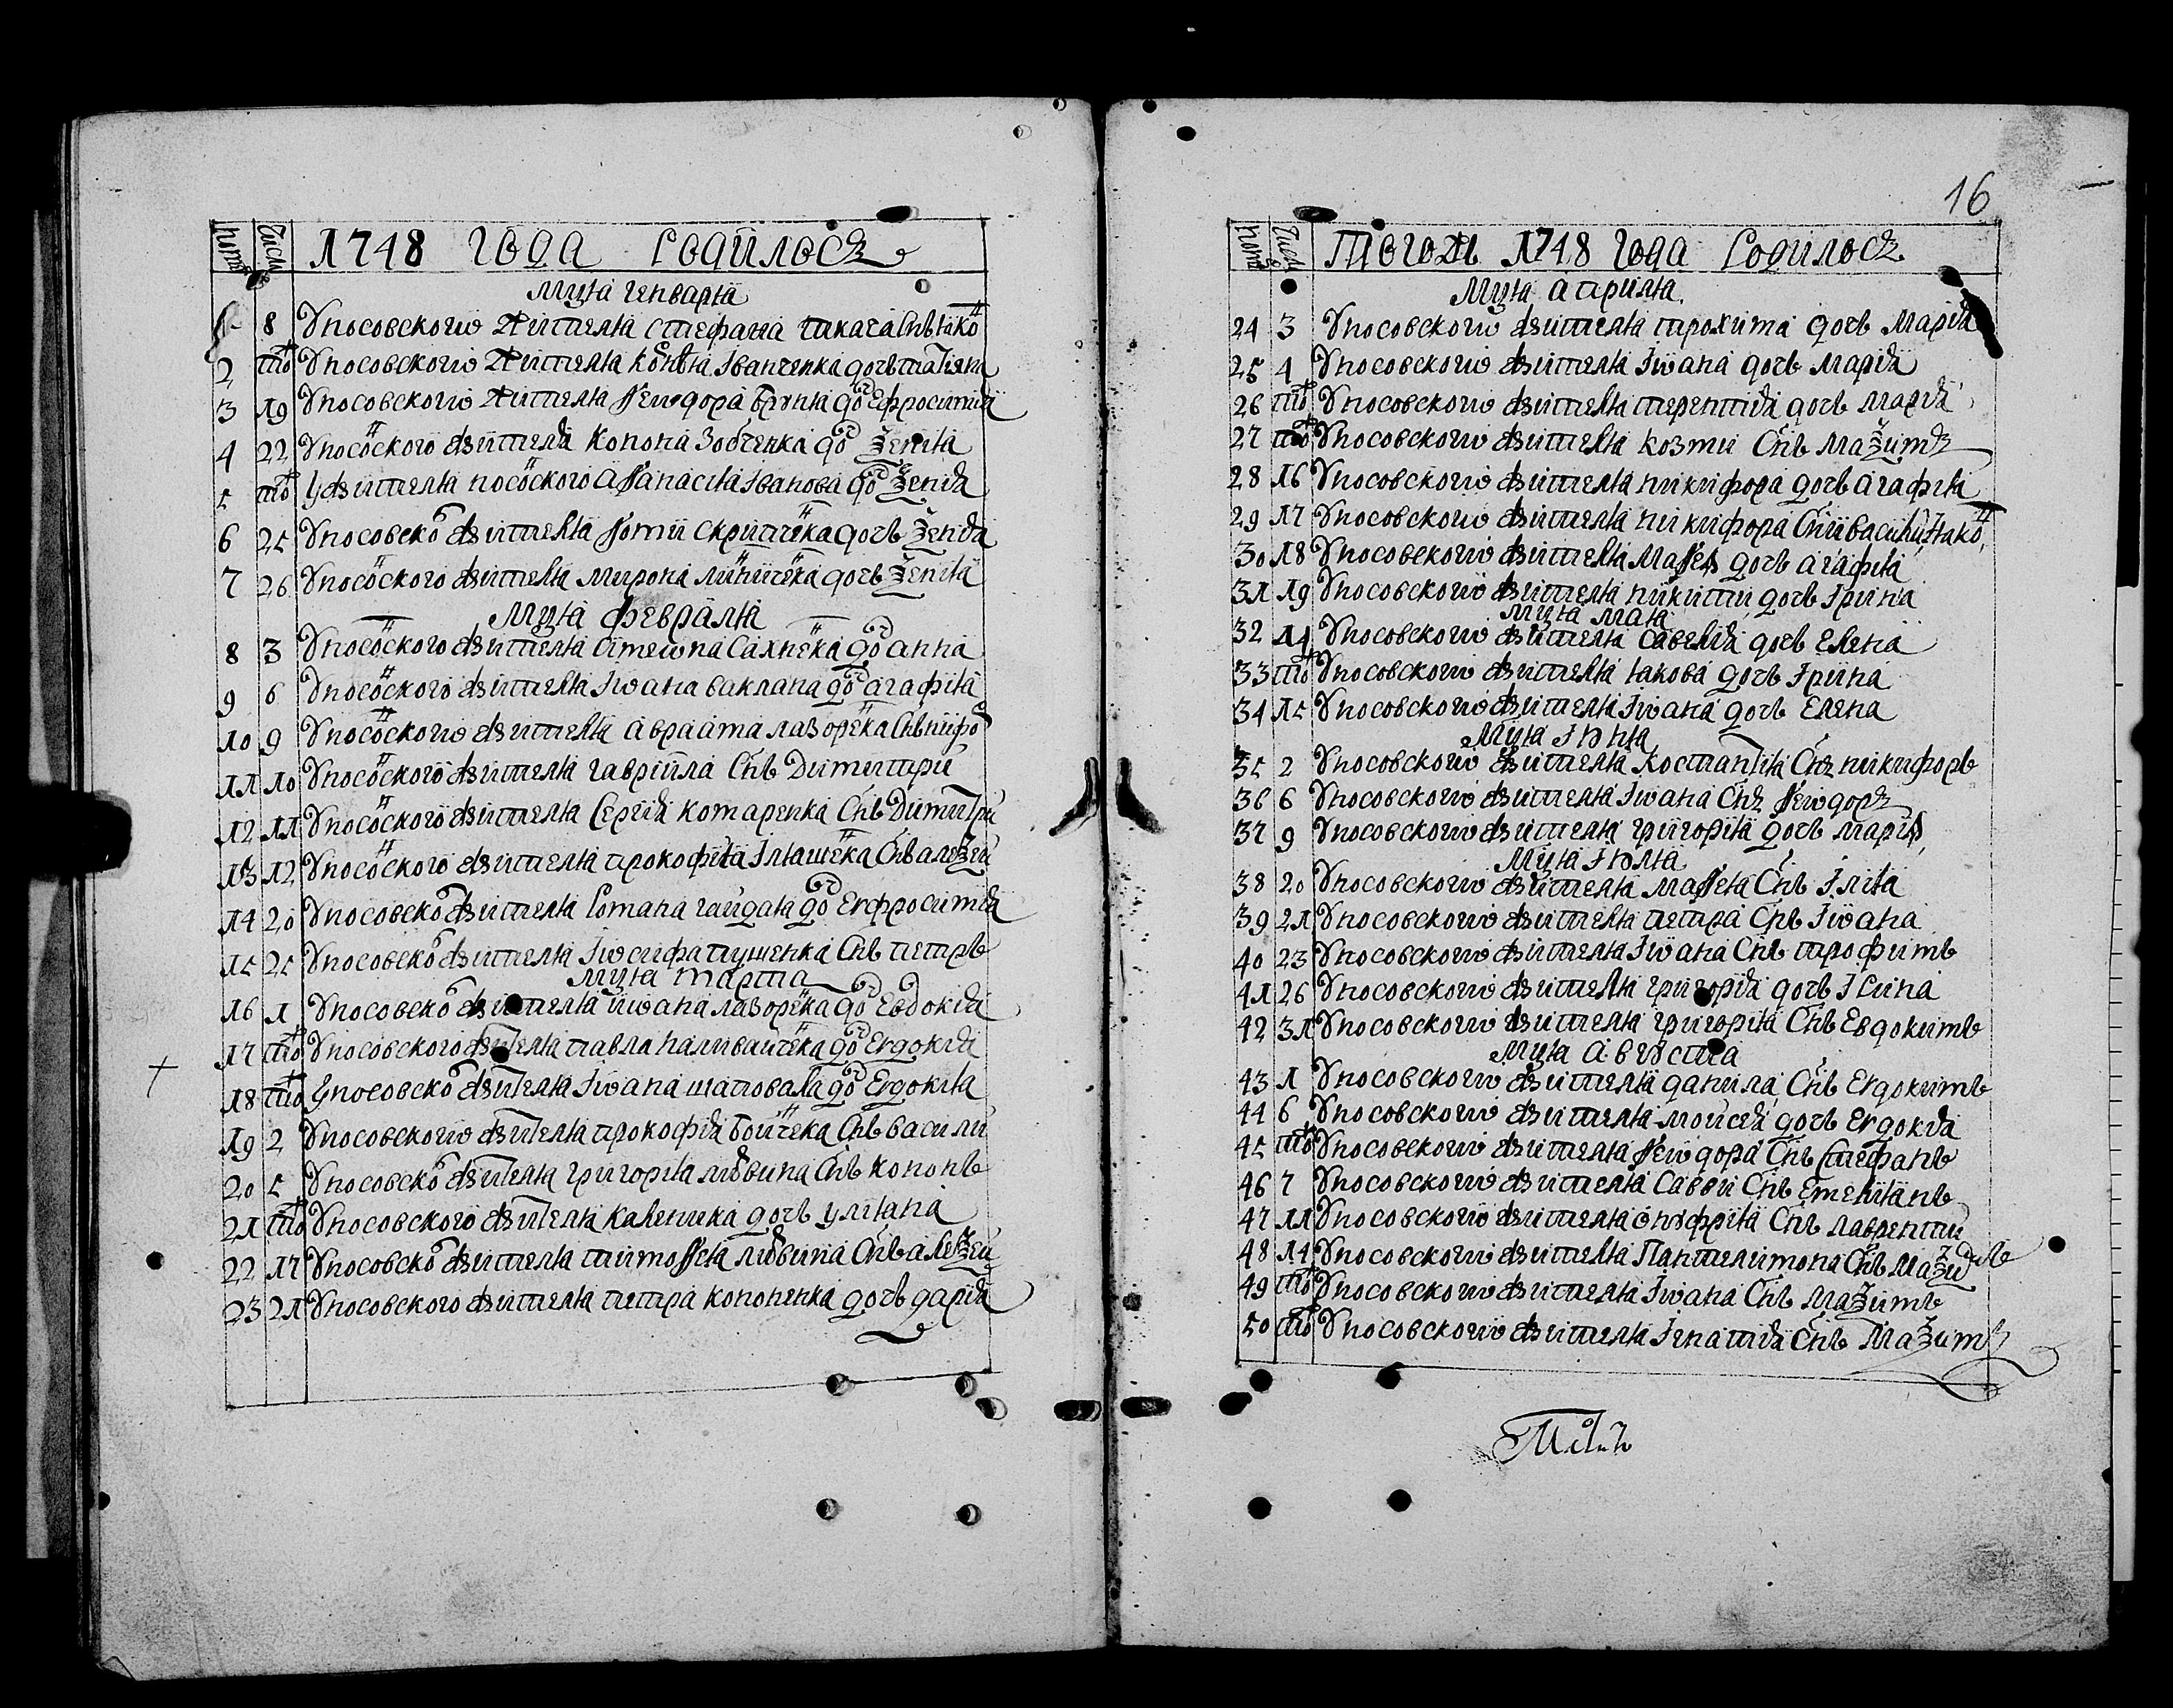 номе число 1748 года родилосѧ
мцѧ генваря
1 8 У носовского жителя стефана ткача снъ Іако
2 то У носовского жителя Іванченка дочъ татияна
3 19 У носовского жителя Ѳеѡдора до Ефросимия
4 22 У носоского жителя конона Зобченка до Ѯения
5 то У жителя носоского аѲанасия Іванова до Ѯения
6 25 У носовско жителя Ѳоми скрипчека дочъ Ѯения
7 26 У носоского жителя мирона дочъ Ѯения
мцѧ февраля
8 3 У носоского жителя симеѡна Сахнека до анна
9 6 У носоского жителя Іѡана баклана до агафия
10 9 У носоского жителя авраама лазорека снъ никифо
11 10 У носоского жителя гавриила снъ димитрий
12 11 У носоского жителя Сергия комаренка снъ димитрий
13 12 У носоского жителя прокофия Іляшека снъ алеѯей
14 20 У носовско жителя Романа гайдая до Евфросимия
15 25 У носовско жителя Іѡсифа пушенка снъ петръ
мцѧ марта
16 1 У носовско жителя иѡана лазорека до Евдокия
17 то У носовского жителя павла наливайчека до Евдокия
18 то У носовско жителя Іѡана шаповала до Евдокия
19 2 У носовского жителя прокофия бойчека снъ василий
20 5 У носовско жителя григория любина снъ кононъ
21 то У носовского жителя каленика дочъ улияна
22 17 У носовско жителя тимоѲея любина снъ алеѯей
23 21 У носовского жителя петра кононенка дочъ дария
16
номе число Тогож 1748 года родилосѧ
мцѧ априля
24 3 У носовского жителя трохима дочъ мария
25 4 У носовского жителя Іѡана дочъ мария
26 то У носовского жителя терентия дочъ мария
27 то У носовского жителя козми снъ маѯимъ
28 16 У носовского жителя никифора дочъ агафия
29 17 У носовского жителя никифора сни василий, Іако
30 18 У носовского жителя маѲея дочъ агафия
31 19 У носовского жителя никити дочъ Ірина
мцѧ мая
32 14 У носовского жителя савелия дочъ Елена
33 то У носовского жителя Іакова дочъ Ірина
34 15 У носовского жителя Іѡана дочъ Елена
мцѧ Іюня
35 2 У носовского жителя костантия снъ никифоръ
36 6 У носовского жителя Іѡана снъ Ѳеѡдоръ
37 9 У носовского жителя григория дочъ мария
мцѧ Іюля
38 20 У носовского жителя маѲея снъ Ілия
39 21 У носовского жителя петра снъ Іѡана
40 23 У носовского жителя Іѡана снъ трофимъ
41 26 У носовского жителя григория дочъ Ірина
42 31 У носовского жителя григория снъ Евдокимъ
мцѧ августа
43 1 У носовского жителя данила снъ Евдокимъ
44 6 У носовского жителя мойсея дочъ Евдокия
45 то У носовского жителя Ѳеѡдора снъ стефанъ
46 7 У носовского жителя Савви снъ Емелиянъ
47 11 У носовского жителя онуфрия снъ лаврентий
48 14 У носовского жителя Пантелимона снъ маѯимъ
49 то У носовского жителя Іѡана снъ маѯимъ
50 то У носовского жителя Ігнатия снъ маѯимъ